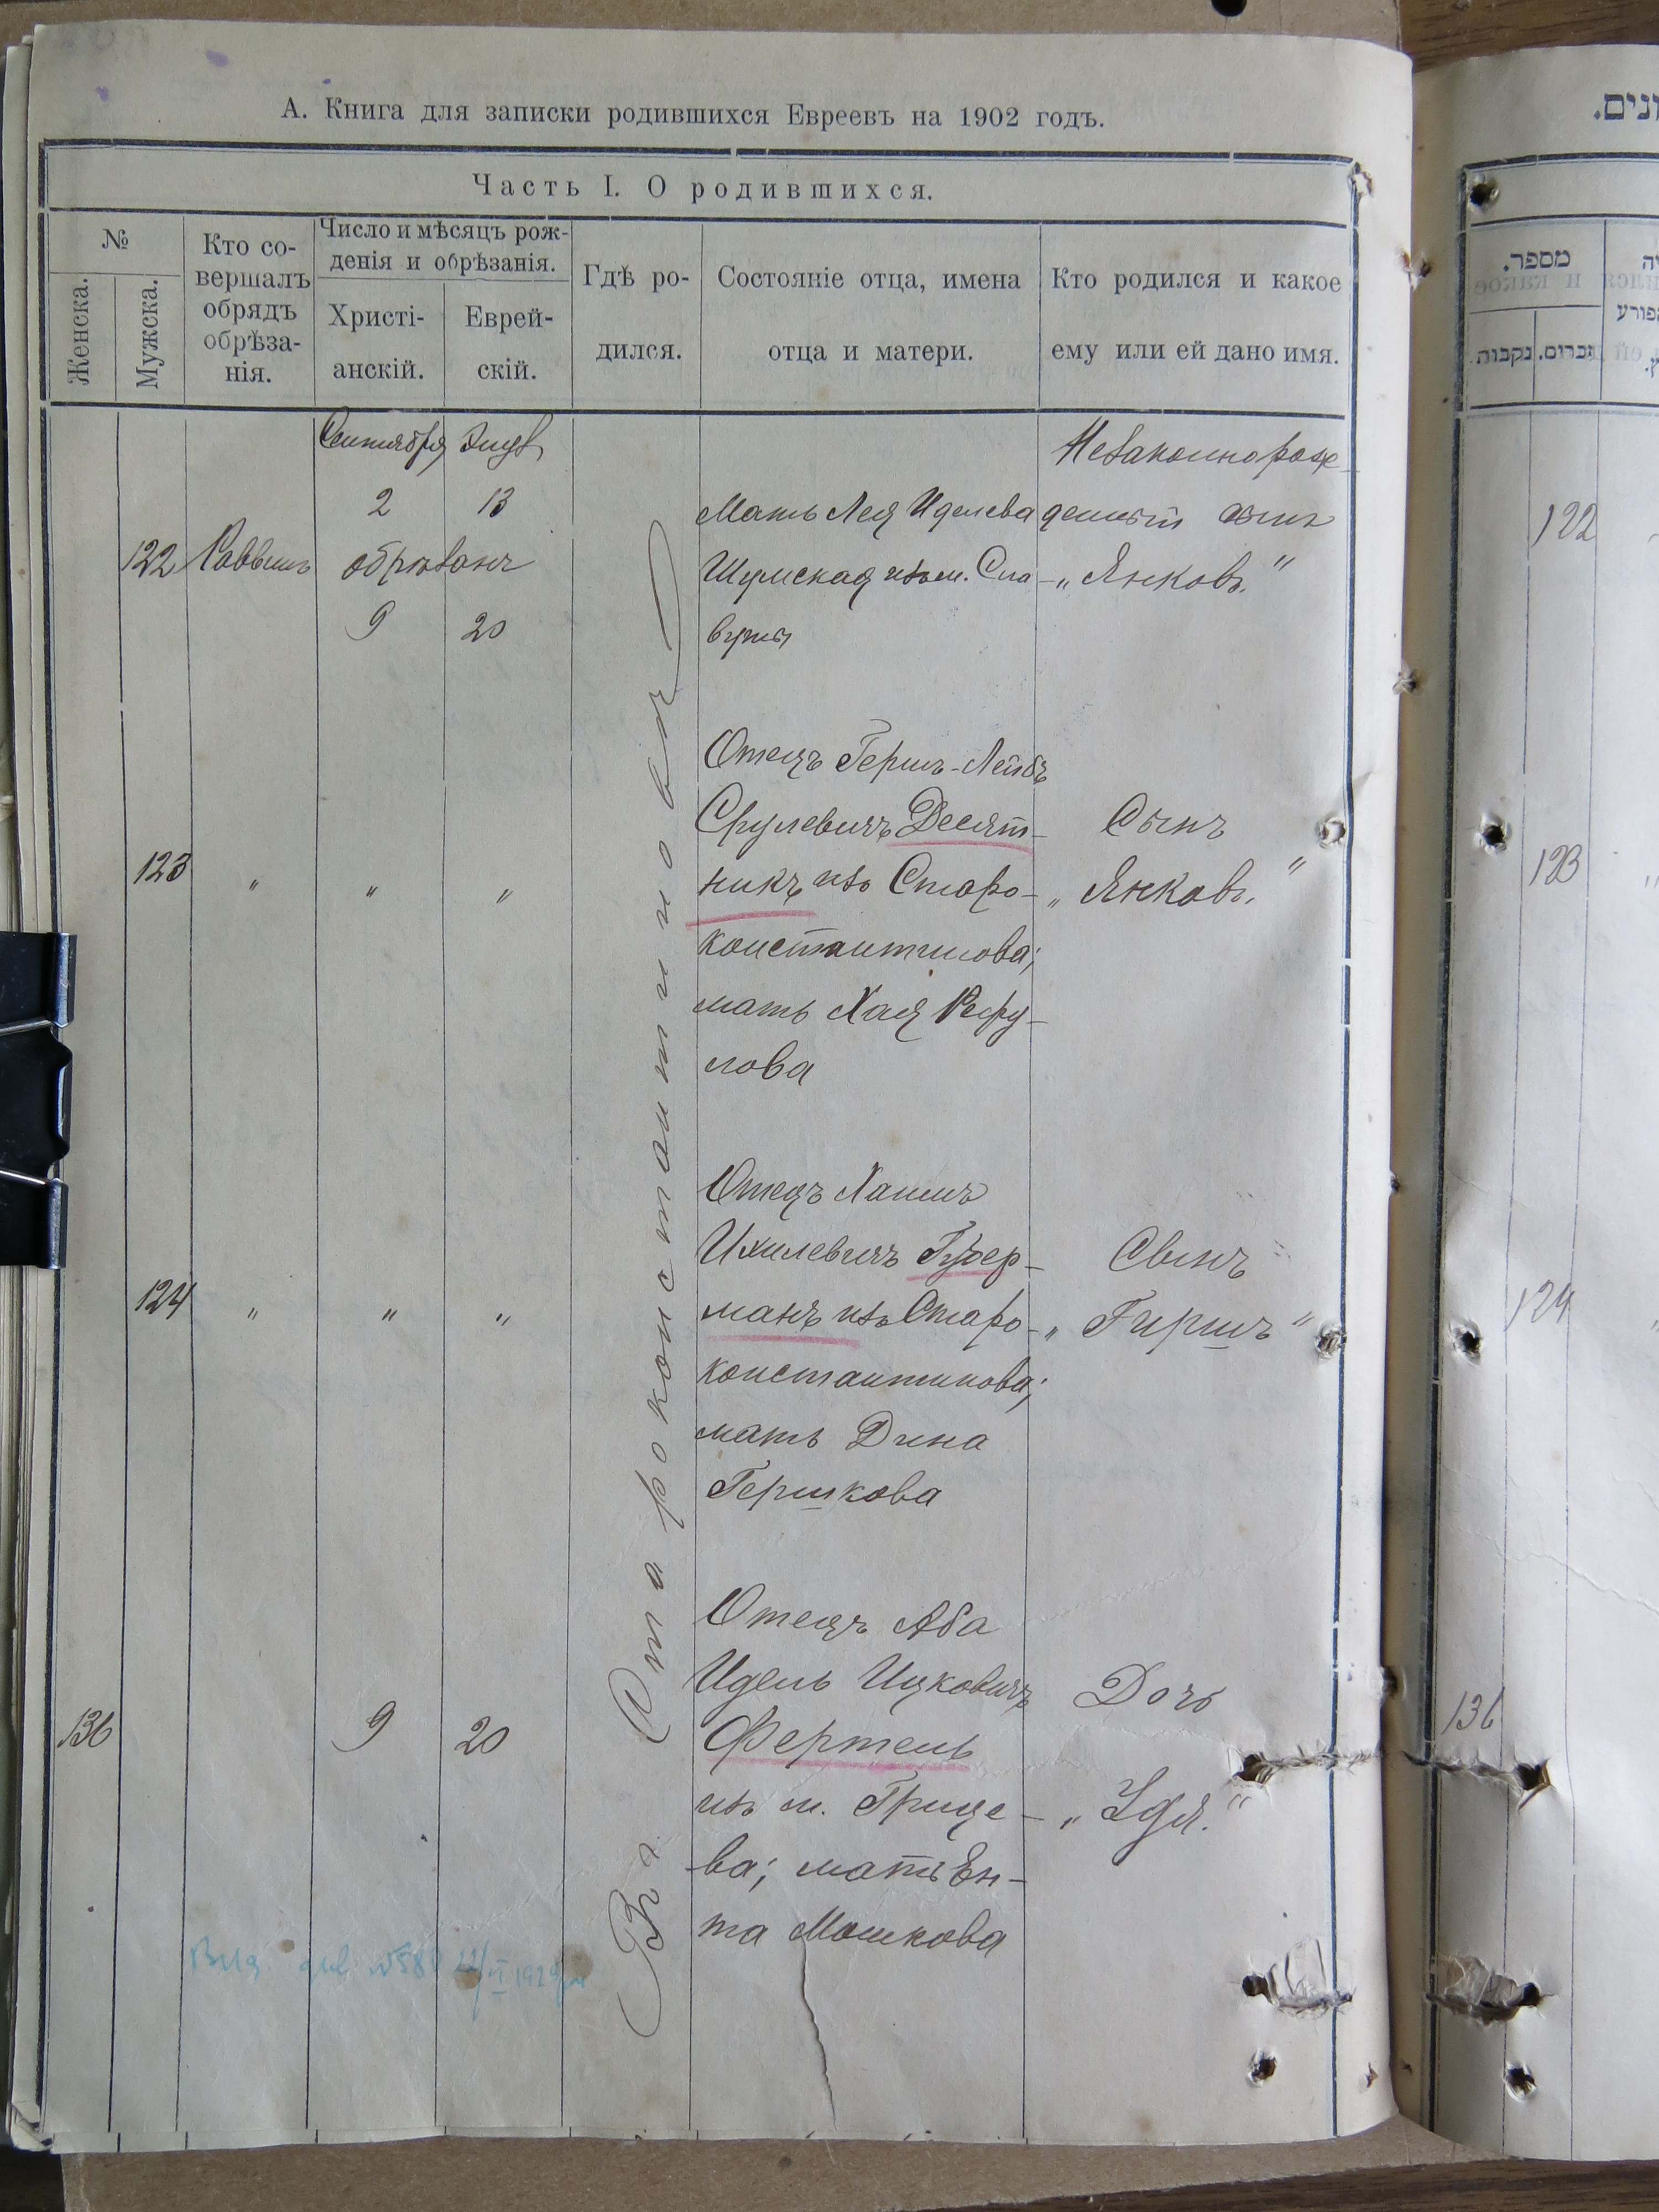 А. Книга для записки родившихся Евреевъ на 1902 годъ.
Часть I. О родившихся.
№
Женска.
Мужска.
Кто со-
вершалъ
обрядъ
обрѣза-
нія.
Число и мѣсяцъ рож-
денія и обрѣзанія.
Христі-
анскій.
Еврей-
скій.
Гдѣ ро-
дился.
Состояніе отца, имена
отца и матери.
Кто родился и какое
ему или ей дано имя.
Сентября Элул
122 Раввинъ
2 13
обрѣзанъ
9 20
Въ Староконстантиновѣ
Мать Лея Иделева
Шумская изъ м. Сла-
вуты
Незаконнорож-
денный сынъ
„Янковъ."
123 " " "
Отецъ Гершъ-Лейбъ
Срулевичъ Десят-
никъ изъ Старо-
константинова;
мать Хая
лова
Сынъ
„Янковъ."
124 " " "
Отецъ Хаимъ
Ихилевичъ Губер-
манъ изъ Старо-
константинова;
мать Дина
Гершкова
Сынъ
„Гиршъ"
136
9 20
Отецъ Аба
Идель Ицковичъ
Фертель
изъ м. Грице-
ва; мать Ен-
та Мошкова
Дочь
„Удя."
1929
ונים.
מספר.
זכרים.
נקבות.
122
123
124
136